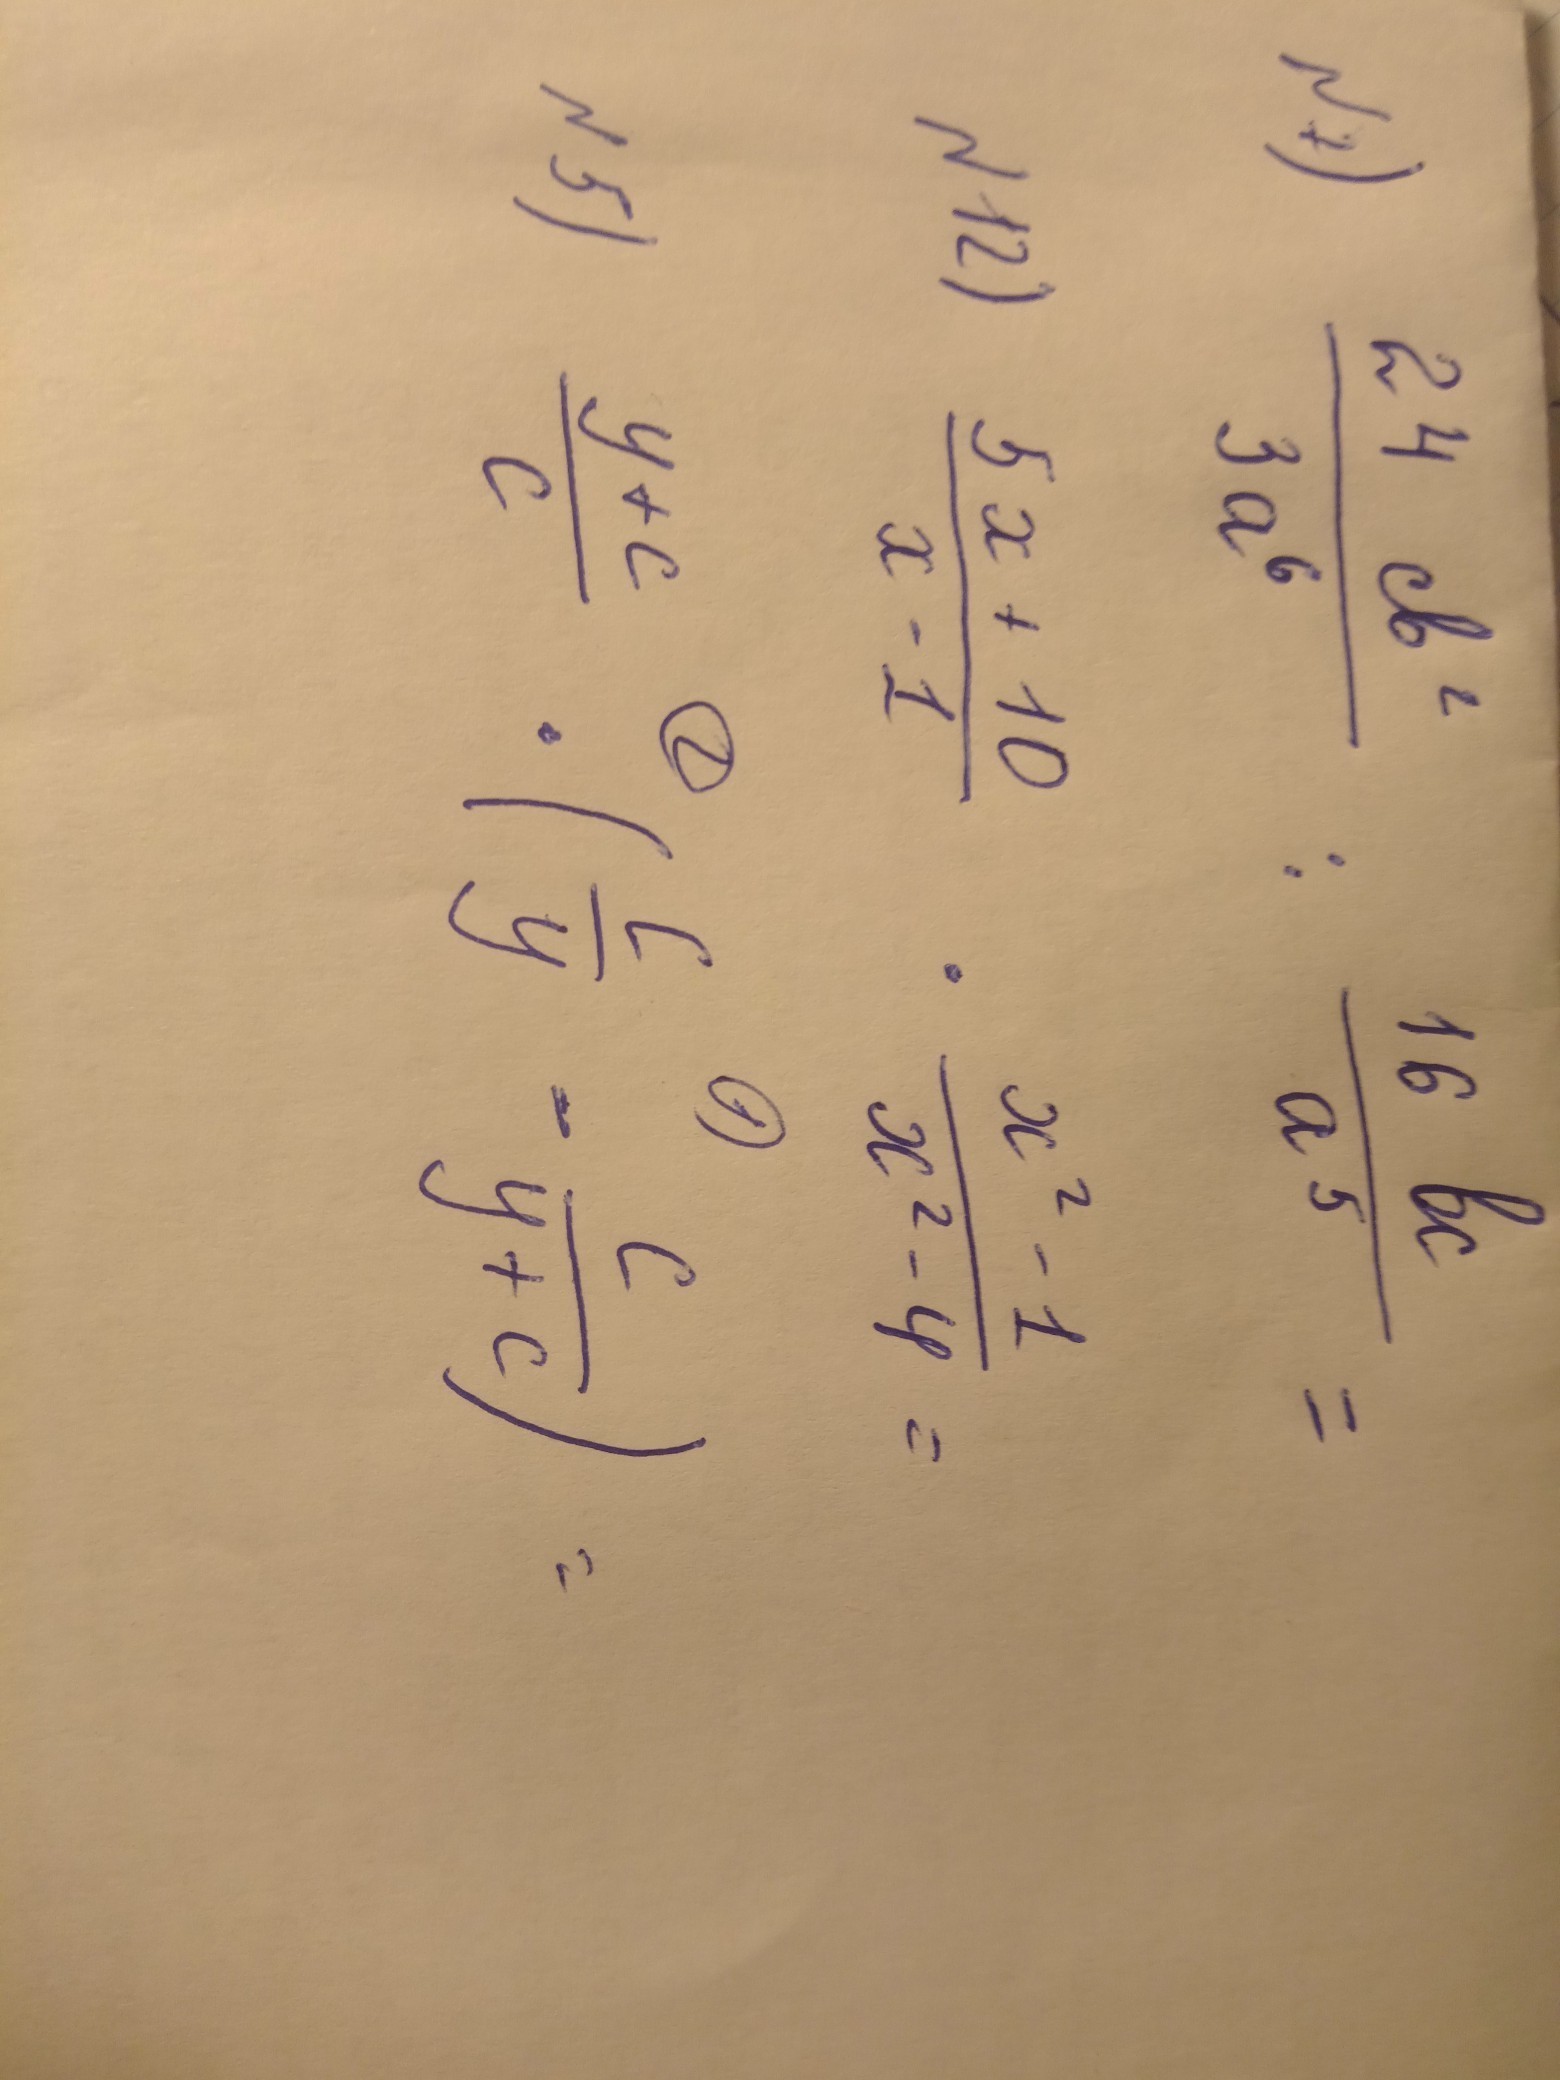 N7) \frac{24cb^2}{3a^6} : \frac{16bc}{a^5} =
N12) \frac{5x+10}{x-1} \cdot \frac{x^2-1}{x^2-4} =
② ①
N5) \frac{y+c}{c} \cdot (\frac{c}{y} - \frac{c}{y+c}) =